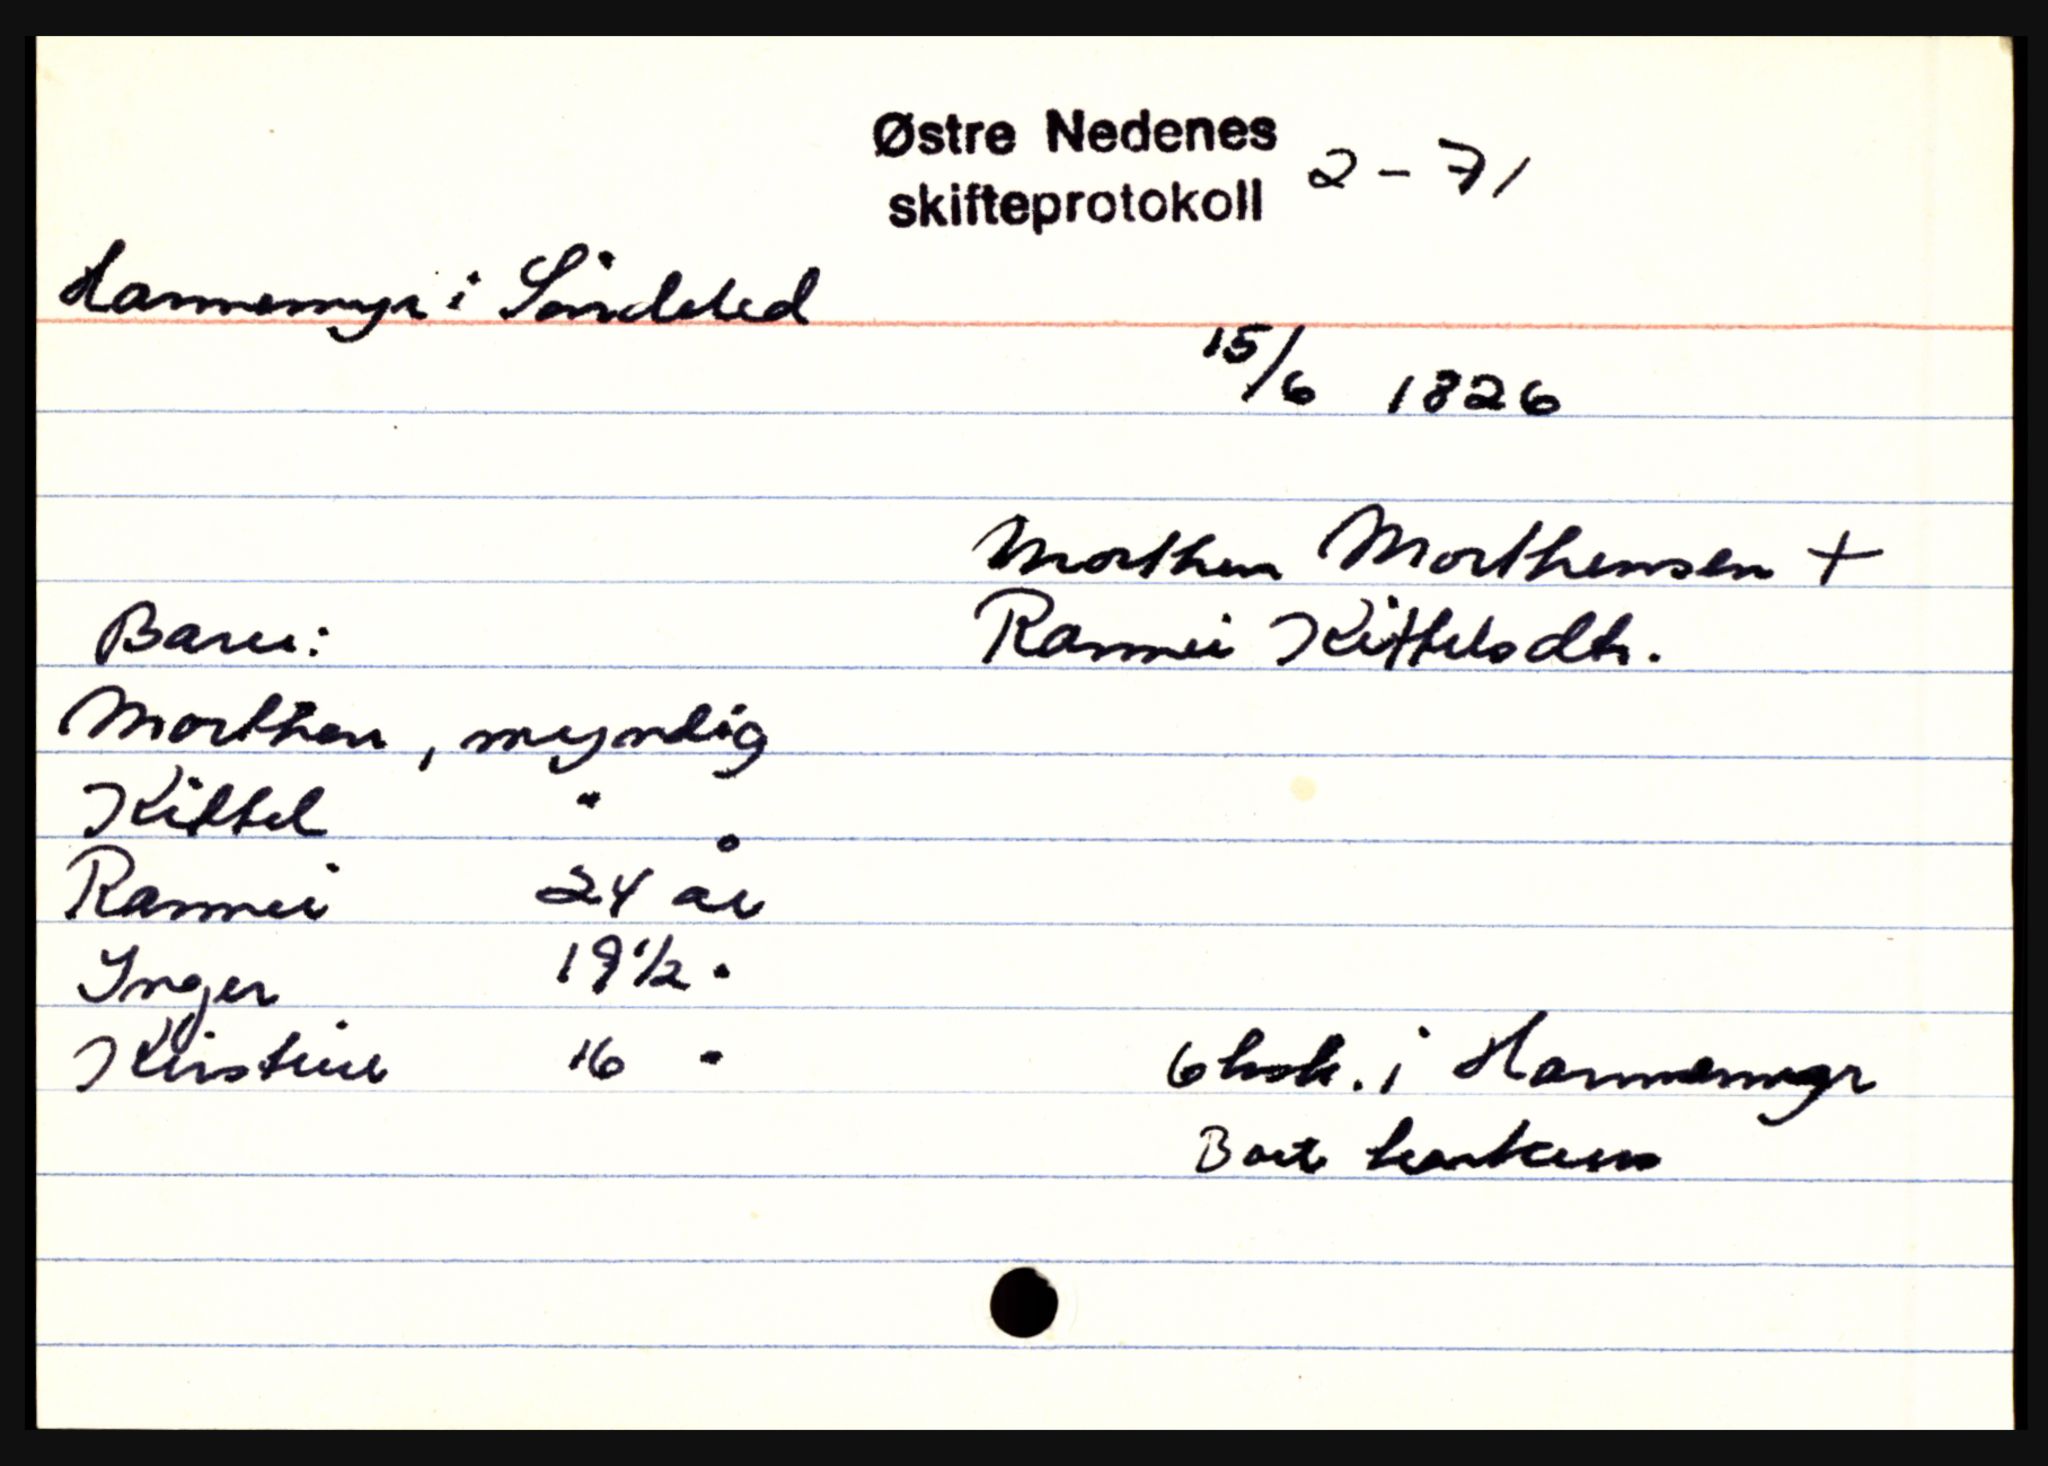 Østre Nedenes
skifteprotokoll 2-71
Hammemyr i Söndeled
15/6 1826
Morthen Morthensen +
Rannei Kittelsdtr.
Barn:
Morthen, myndig
Kittel "
Rannei 24 år
Inger 19 1/2 "
Kirstine 16 "
i Hammemyr